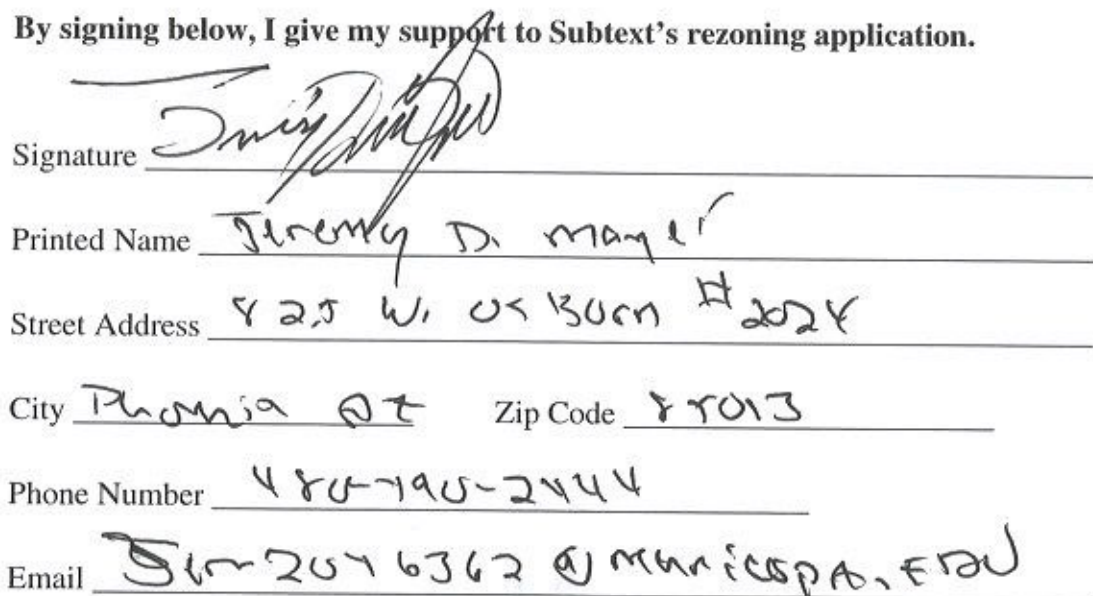 By signing below, I give my support to Subtext's rezoning application.
Signature
Printed Name Jeremy D. Mayer
Street Address 825 W. Osborn #2024
City Phonia Az Zip Code 85013
Phone Number 480-790-2444
Email 2046362@maricopA.EDU